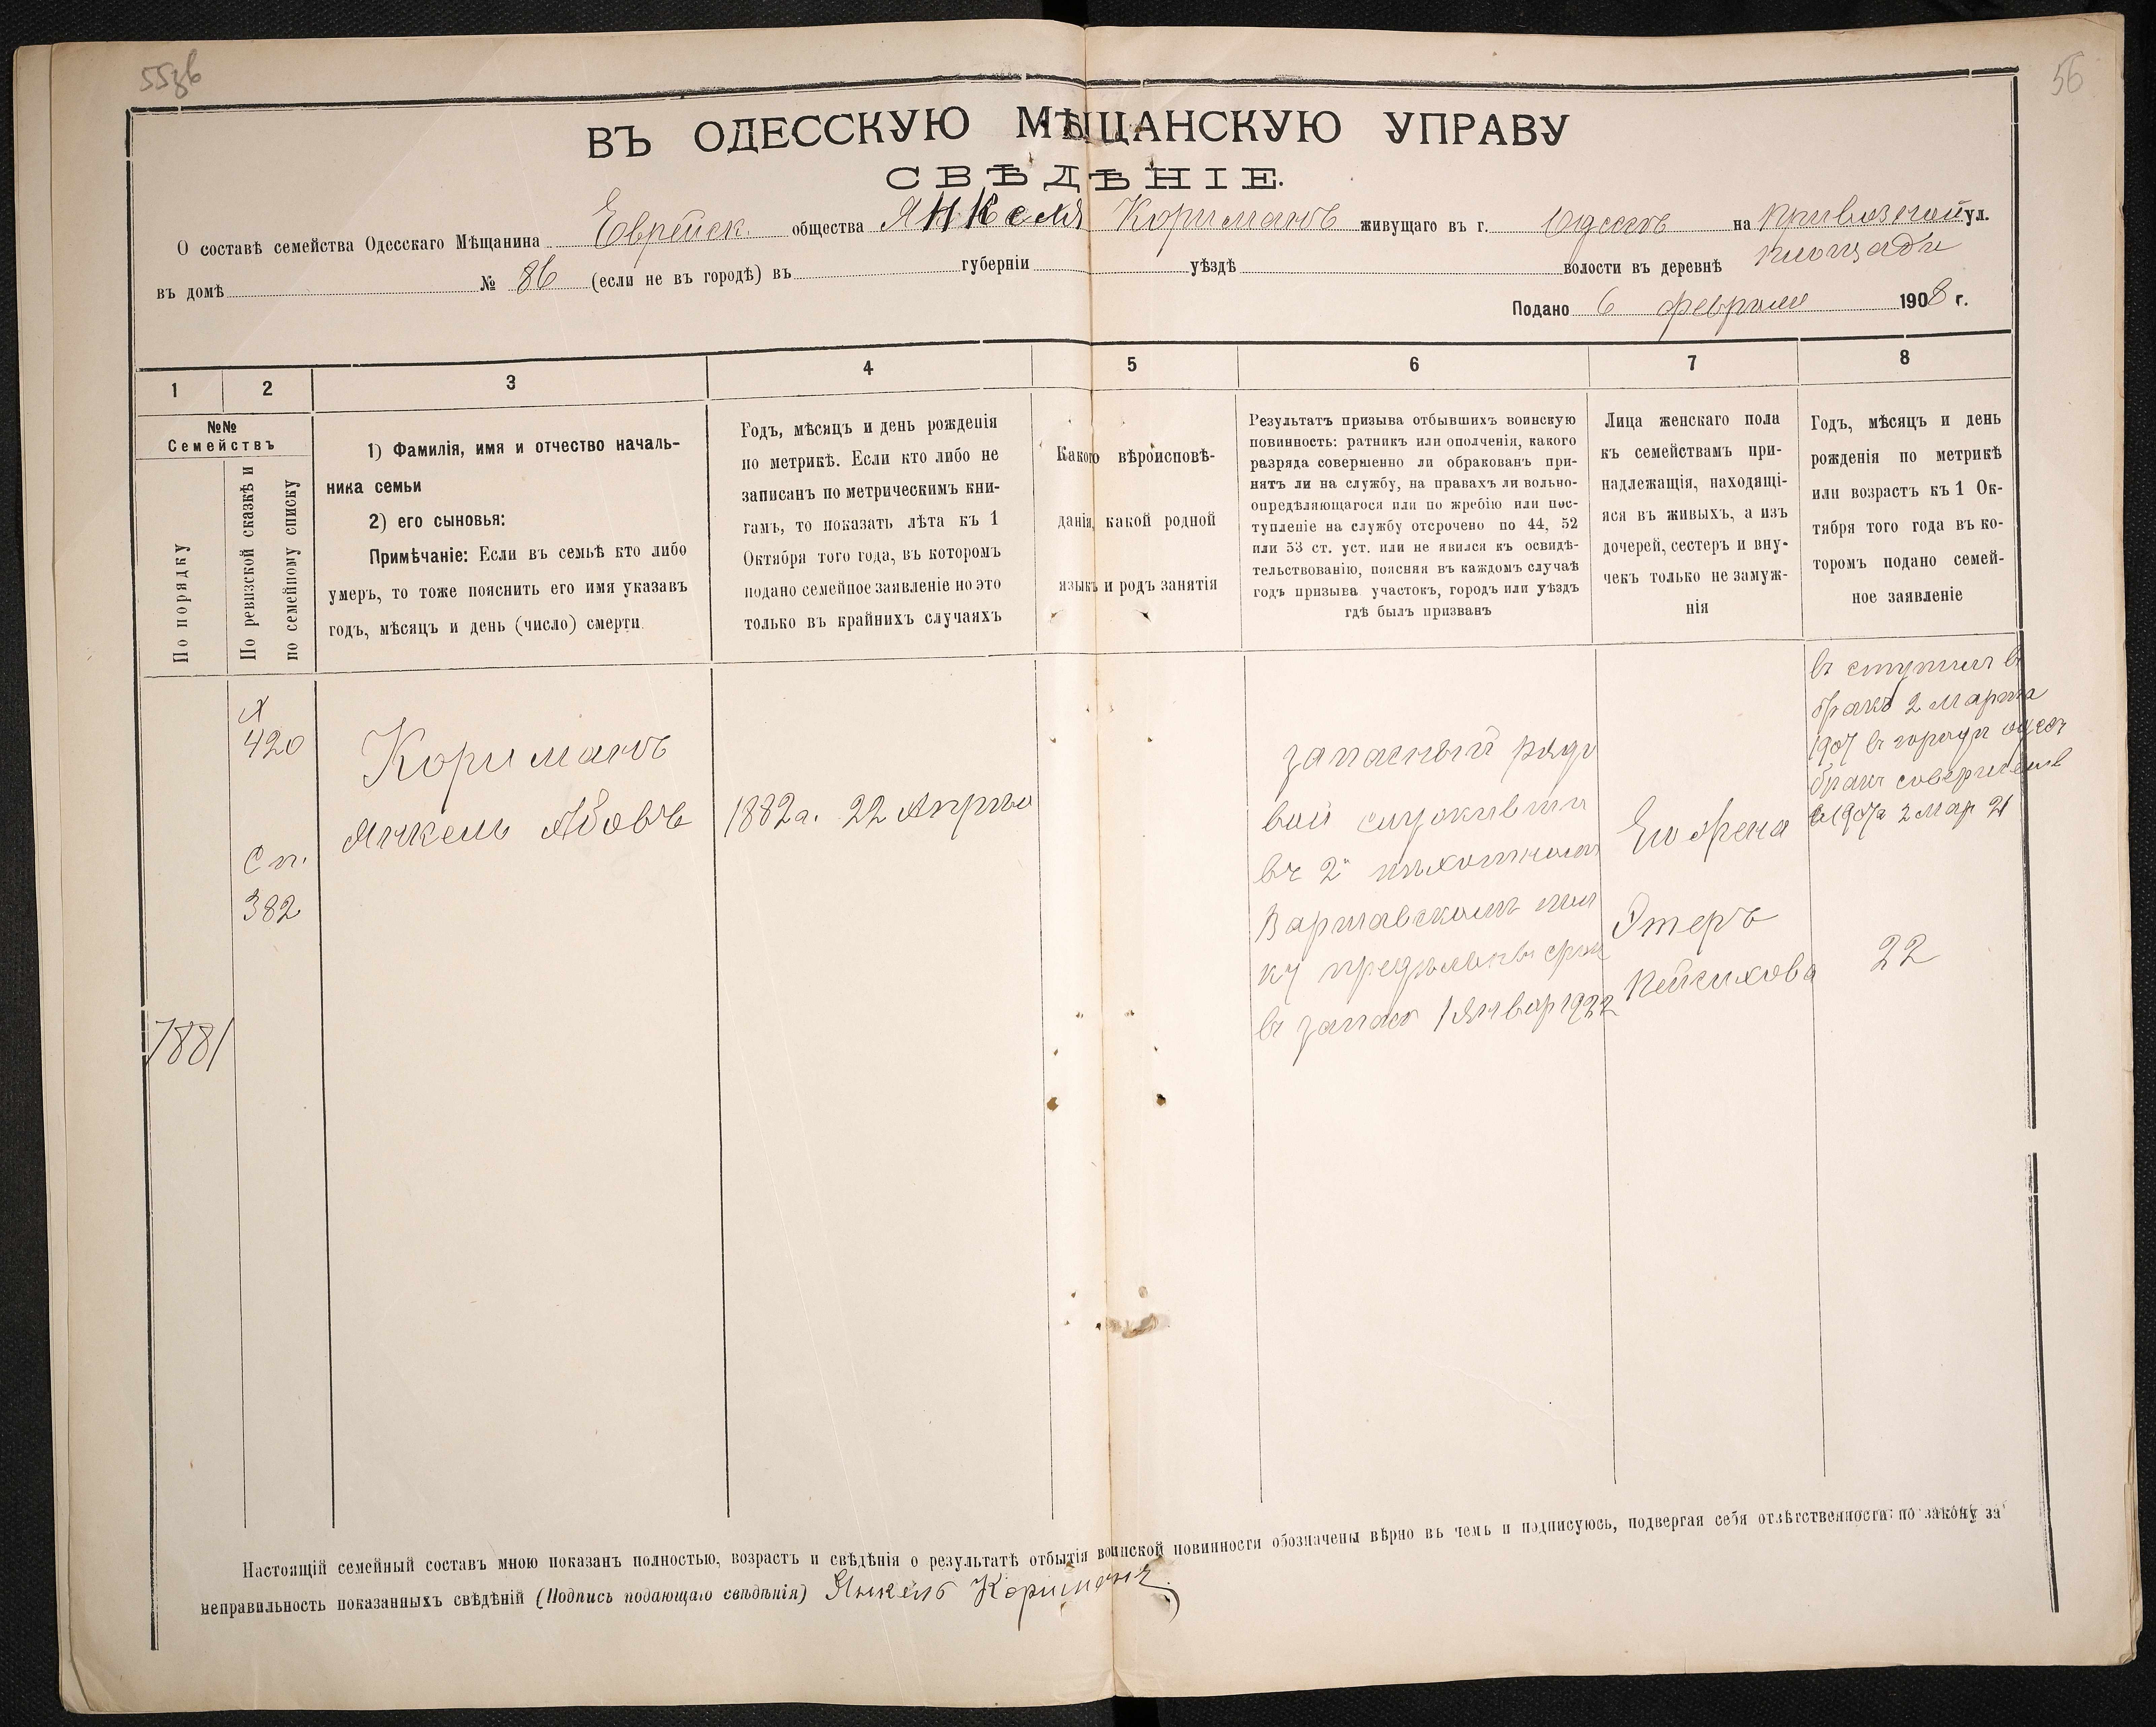 56
ВЪ ОДЕССКУЮ МѢЩАНСКУЮ УПРАВУ
СВѢДѢНІЕ.
О составѣ семейства Одесскаго Мѣщанина Еврейск. общества Янкеля Кориманъ живущаго въ г. Одессѣ на Привозной ул.
площади
въ домѣ № 86 (если не въ городѣ) въ губерніи уѣздѣ волости въ деревнѣ
Подано 6 февраля 1908 г.
1 2 3 4 5 6 7 8
№№
Семействъ
По порядку
По ревизской сказкѣ и
по семейному списку
1) Фамилія, имя и отчество началь-
ника семьи
2) его сыновья:
Примѣчаніе: Если въ семьѣ кто либо
умеръ, то тоже пояснить его имя указавъ
годъ, мѣсяцъ и день (число) смерти
Годъ, мѣсяцъ и день рожденія
по метрикѣ. Если кто либо не
записанъ по метрическимъ кни-
гамъ, то показать лѣта къ 1
Октября того года, въ которомъ
подано семейное заявленіе но это
только въ крайнихъ случаяхъ
Какого вѣроисповѣ-
данія, какой родной
языкъ и родъ занятія
Результатъ призыва отбывшихъ воинскую
повинность: ратникъ или ополченія, какого
разряда совершенно ли обракованъ при-
нятъ ли на службу, на правахъ ли вольно-
опредѣляющагося или по жребію или пос-
тупленіе на службу отсрочено по 44, 52
или 53 ст. уст. или не явился къ освидѣ-
тельствованію, поясняя въ каждомъ случаѣ
годъ призыва участокъ, городъ или уѣздъ
гдѣ былъ призванъ
Лица женскаго пола
къ семействамъ при-
надлежащія, находящі-
яся въ живыхъ, а изъ
дочерей, сестеръ и вну-
чекъ только не замуж-
нія
Годъ, мѣсяцъ и день
рожденія по метрикѣ
или возрастъ къ 1 Ок-
тября того года въ ко-
торомъ подано семей-
ное заявленіе
420
Сп.
382
7881
Кориманъ
Янкель Абовъ
1882г. 22 Апрѣля
запасный рядо
вой служивши
въ 2й пѣхотномъ
Варшавскомъ пол
ку
въ запасъ 1 Январ 1922
Его жена
Этеръ
Пейсихова
въ ступилъ въ
бракъ 2 Марта
1907 въ городѣ одесѣ
бракъ совершенъ
в 1907г 2 Мар
22
Настоящій семейный составъ мною показанъ полностью, возрастъ и свѣдѣнія о результатѣ отбытія воинской повинности обозначены вѣрно въ чемъ и подписуюсь, подвергая себя отвѣтственности по закону за
неправильность показанныхъ свѣдѣній (Подпись подающаго свѣдѣнія) Янкель Кориманъ